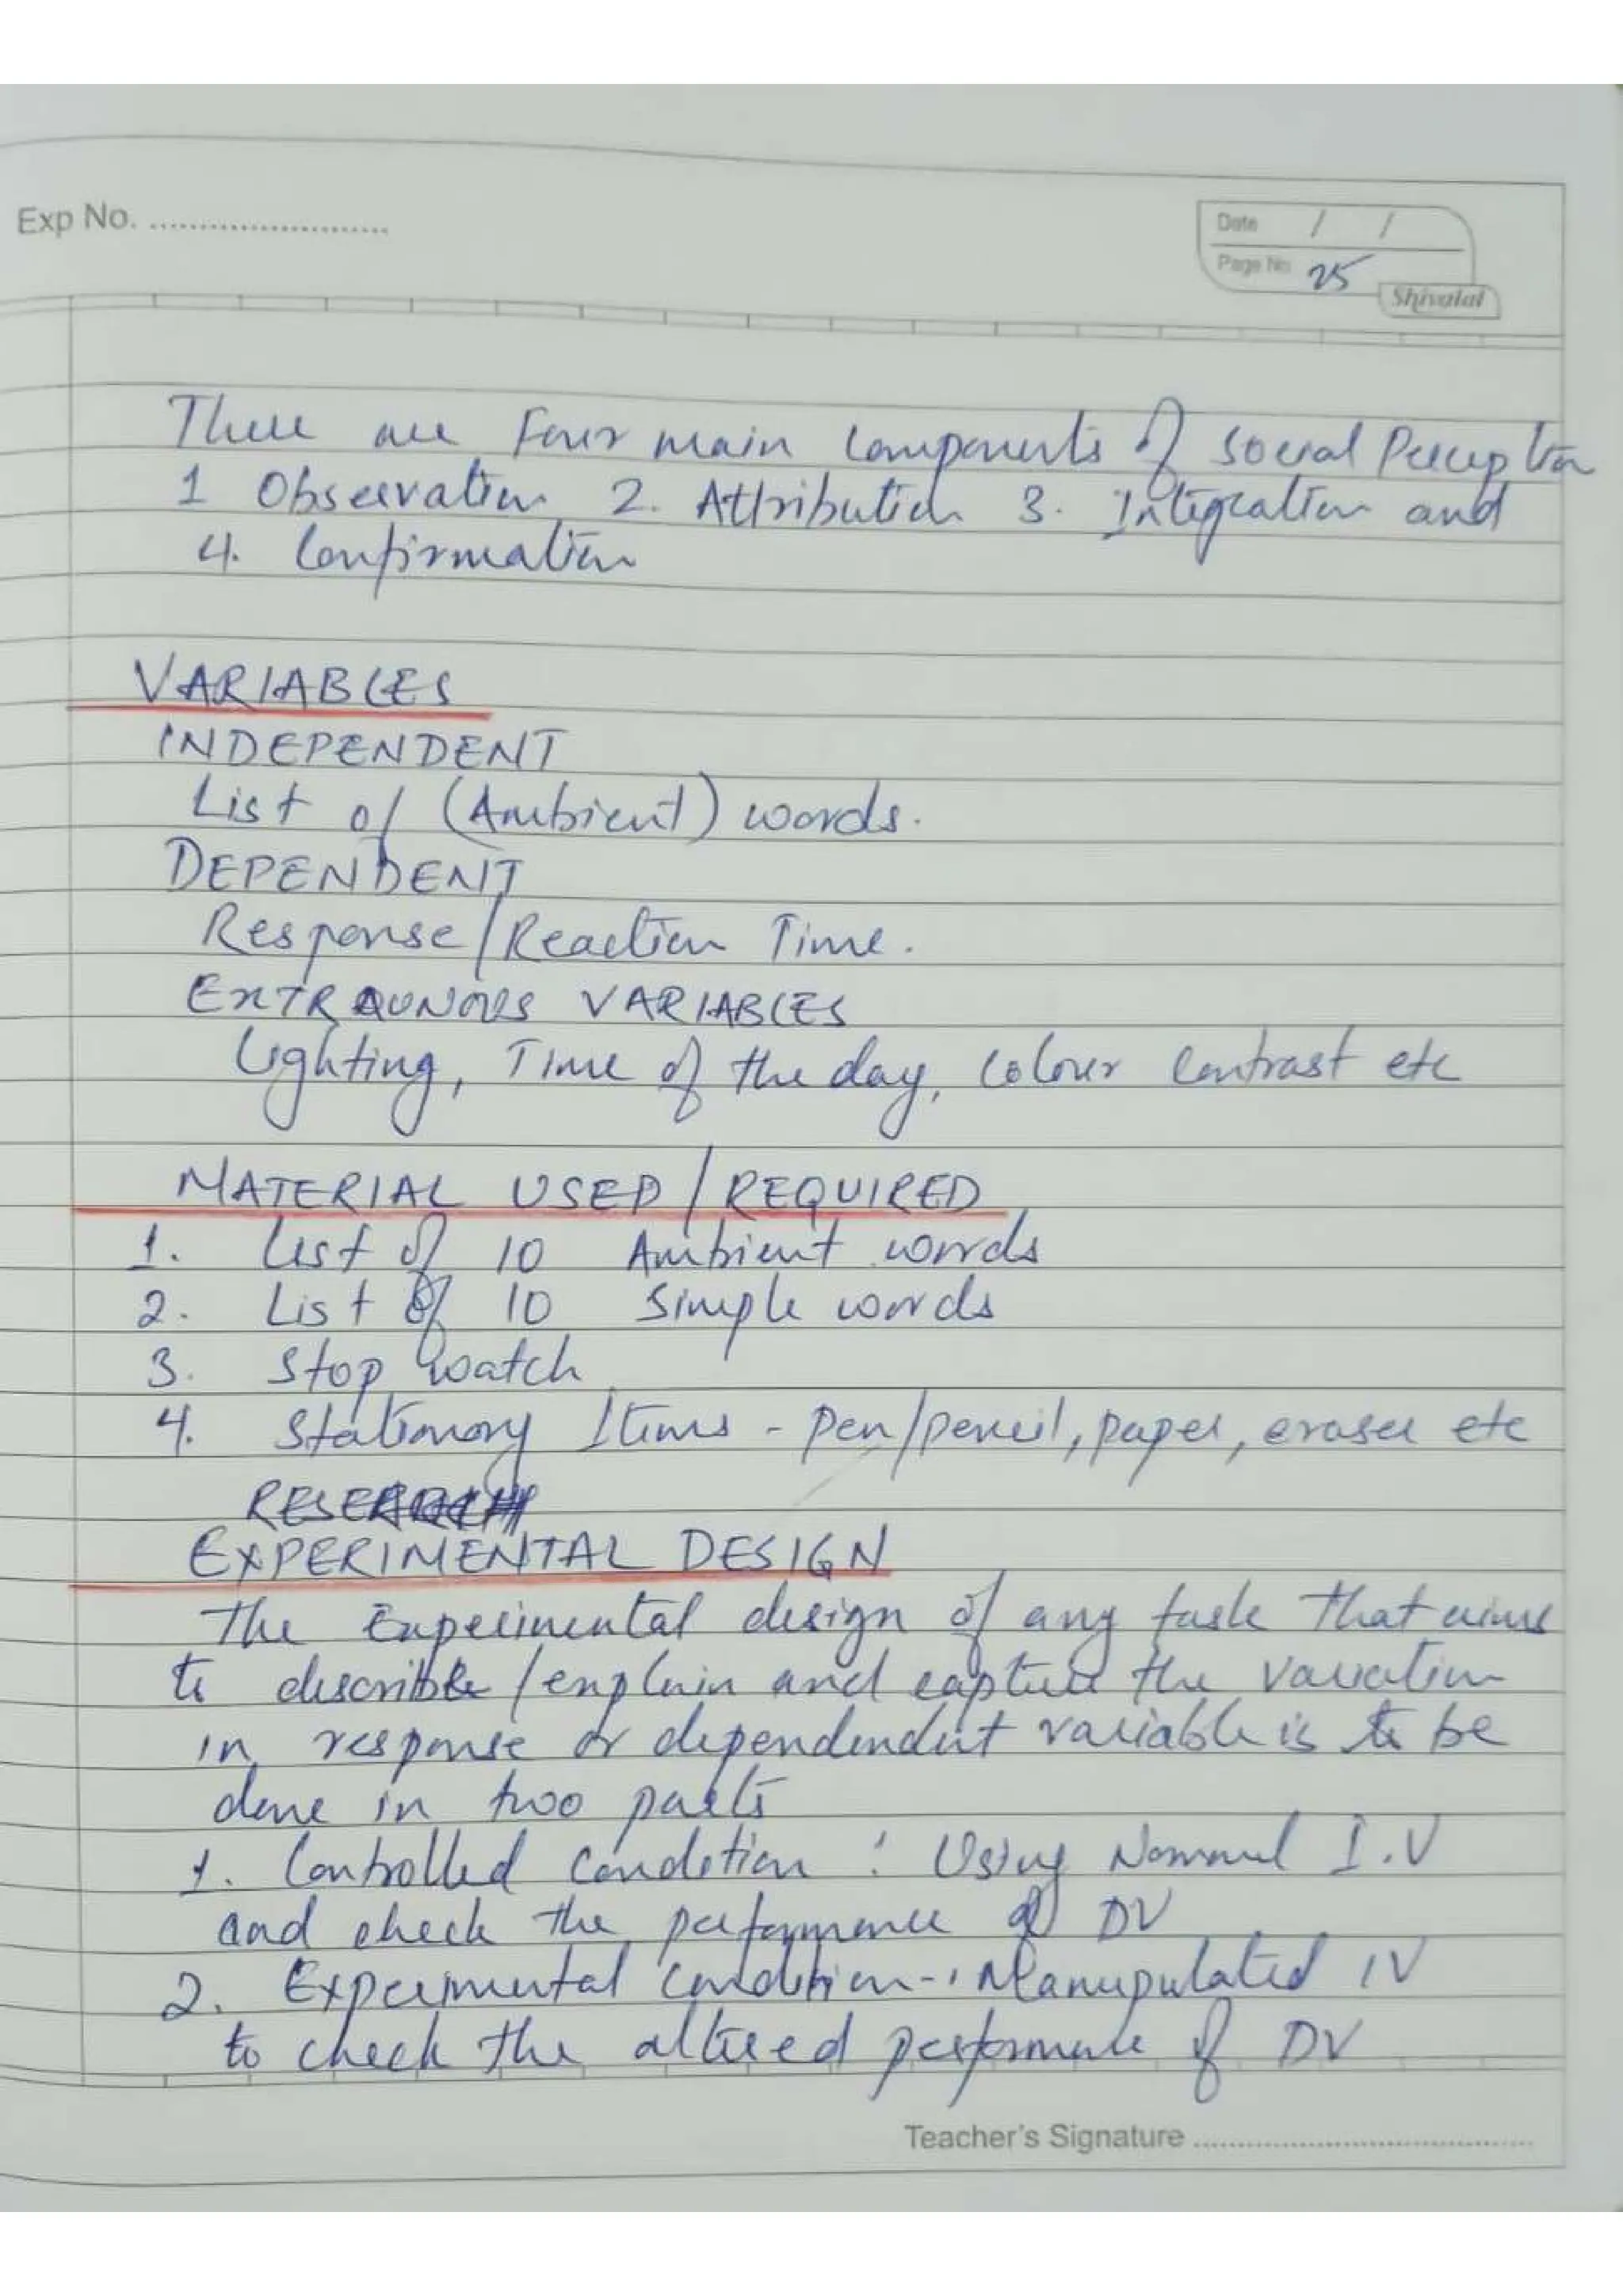 Exp No. ........................
Date / /
Page No 25
Shivalal
There are Four main Components of Social Perception
1 Observation 2. Attribution 3. Integration and
4. Confirmation
VARIABLES
INDEPENDENT
List of (Ambient) words.
DEPENDENT
Response/Reaction Time.
EXTRAUNOUS VARIABLES
Lighting, Time of the day, Colour Contrast etc
MATERIAL USED/REQUIRED
1. List of 10 Ambient words
2. List of 10 Simple words
3. Stop watch
4. Stationory Items - pen/pencil, paper, eraser etc
EXPERIMENTAL DESIGN
The Experimental design of any task that aims
to describe/explain and capture the variation
in response or dependendent variable is to be
done in two parts
1. Controlled Condition : Using Normal I.V
and check the performance of DV
2. Experimental Condition-: Manupulated IV
to check the altered performance of DV
Teacher's Signature ........................................